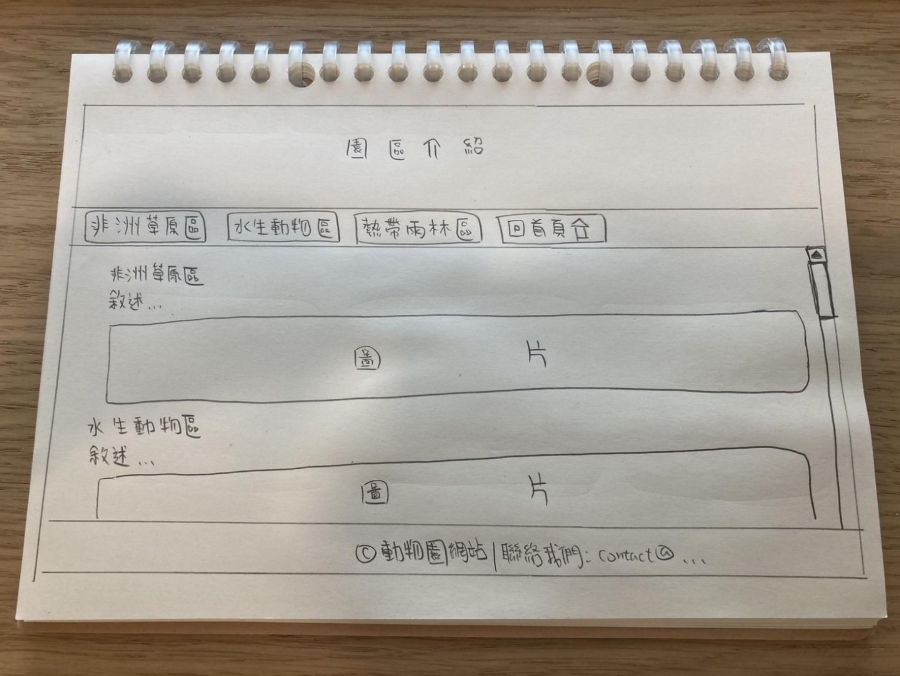 園區介紹
非洲草原區 水生動物區 熱帶雨林區 回首頁
非洲草原區
敘述...
圖片
水生動物區
敘述...
圖片
©動物園網站|聯絡我們: contact@...